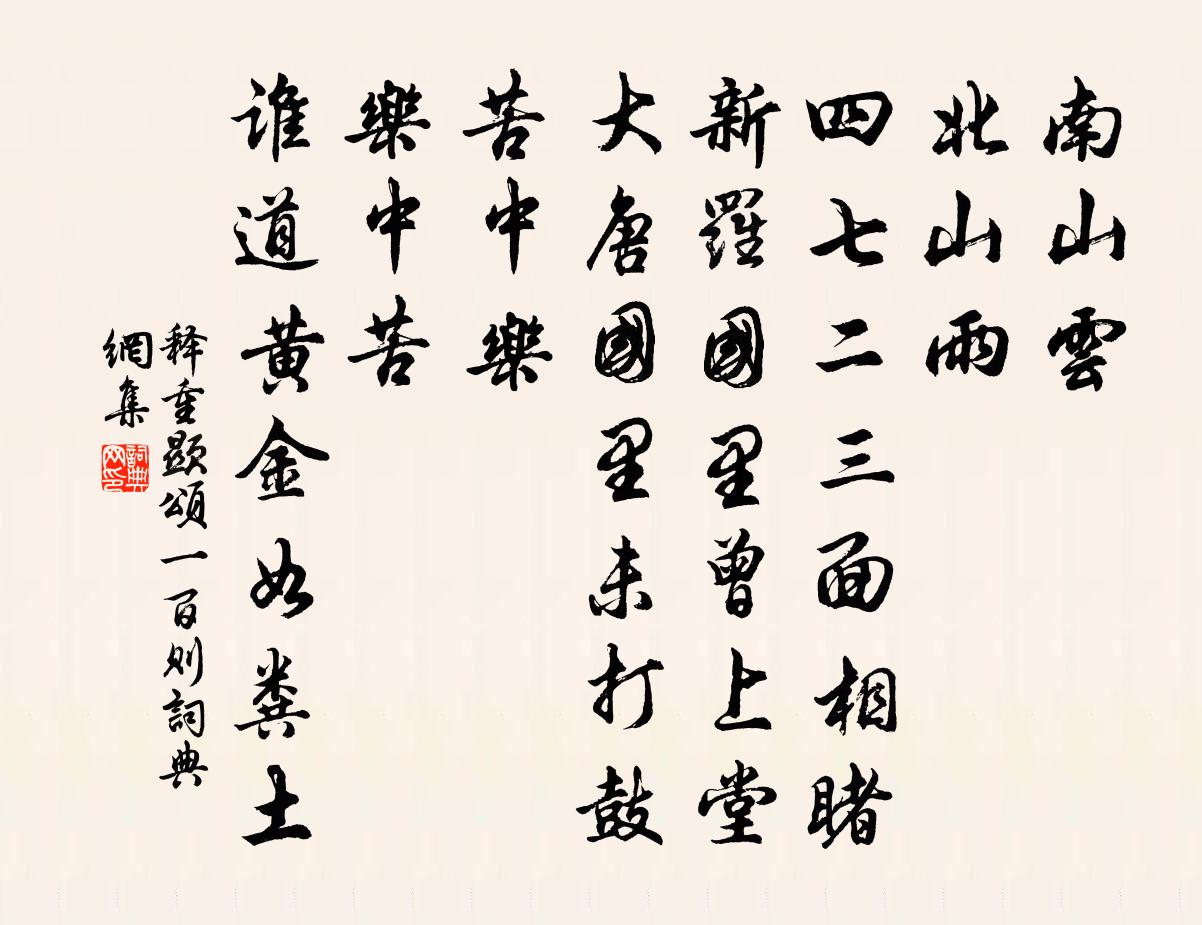 南山雲
北山雨
四七二三面相睹
新羅國里曾上堂
大唐國里未打鼓
苦中樂
樂中苦
誰道黄金如糞土
释重顯頌一百则詞典
網集
詞典
网印